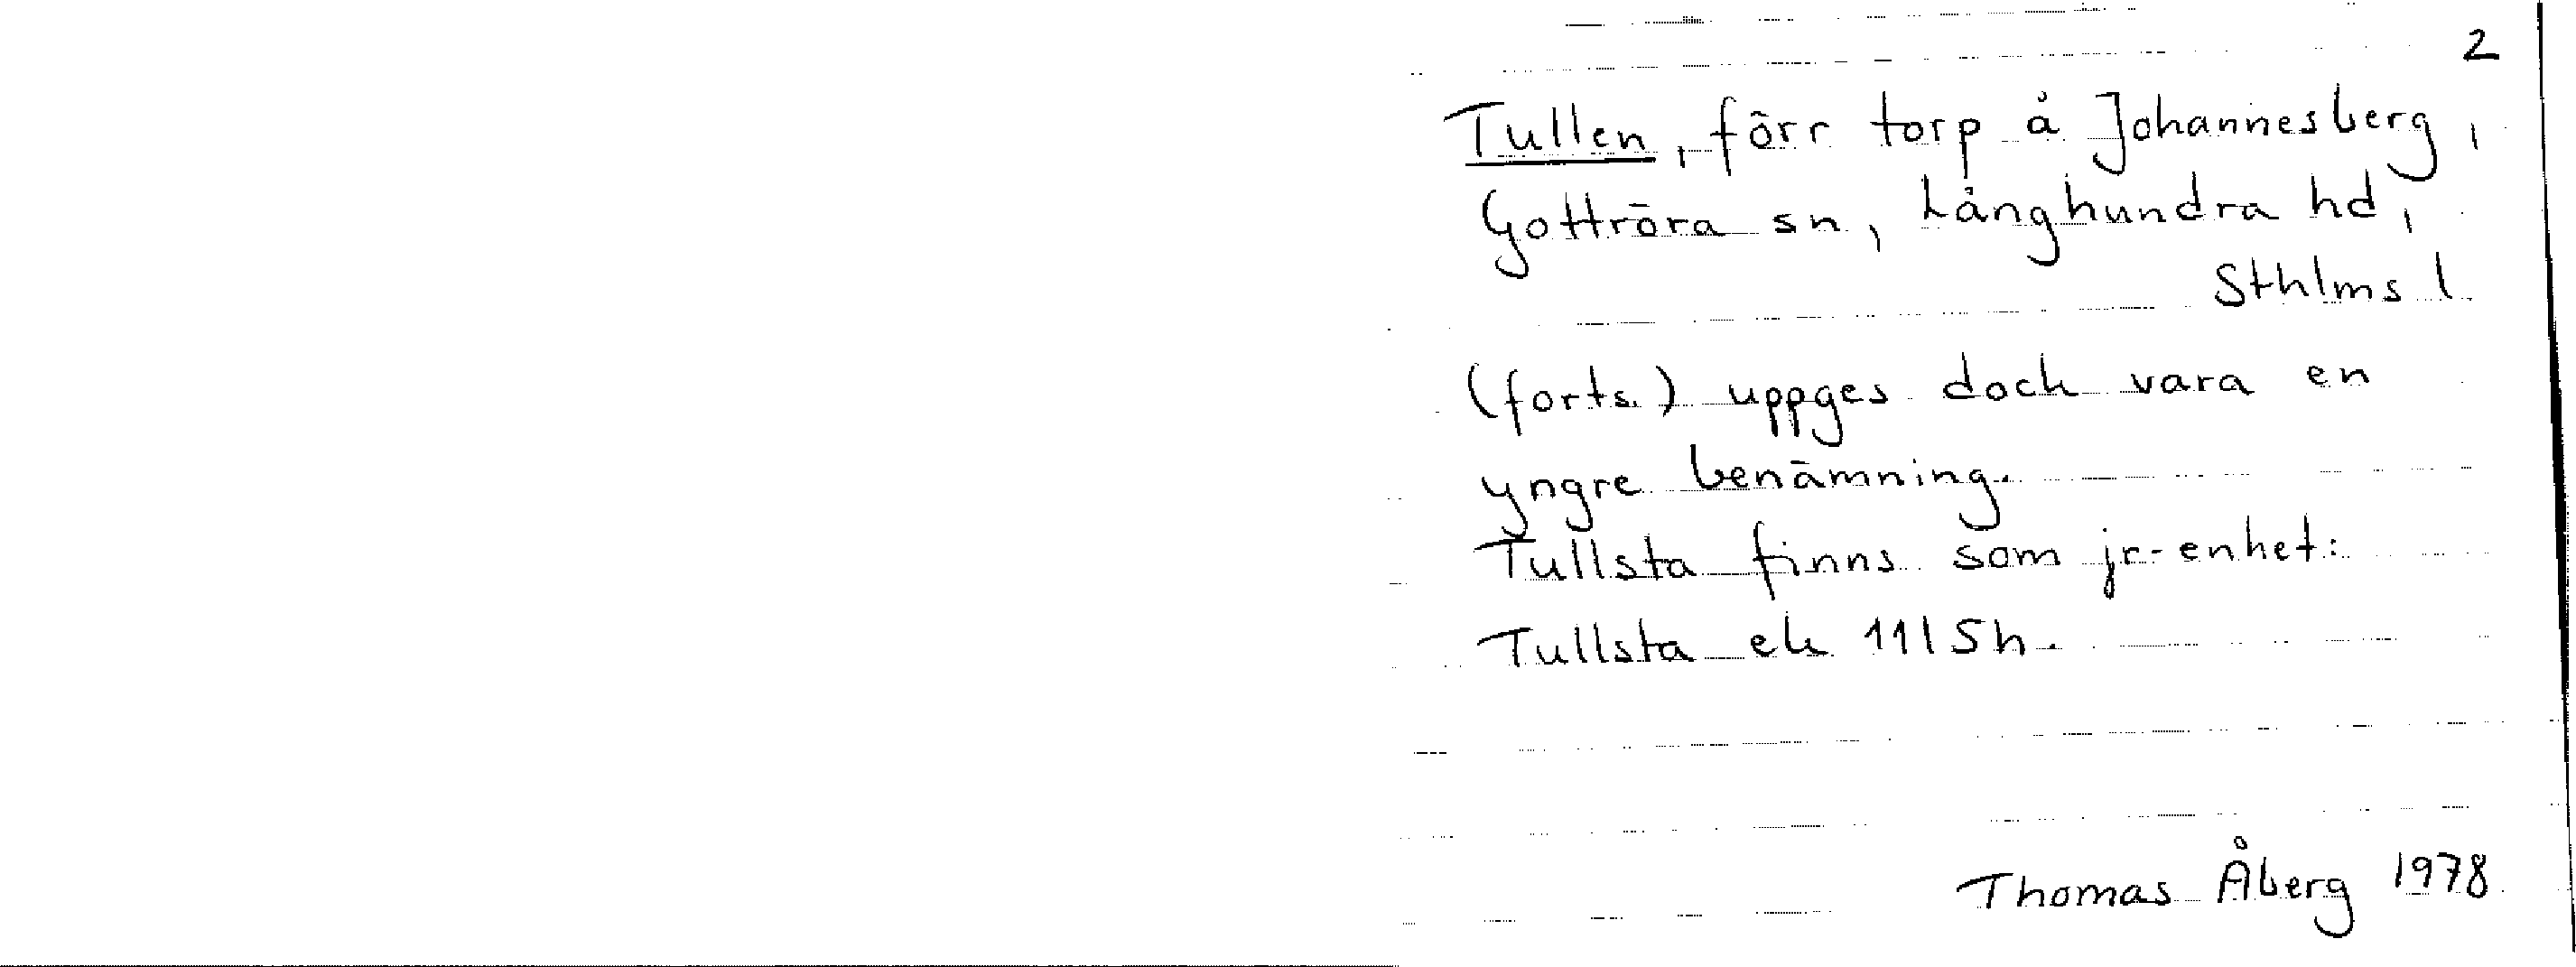 2
Tullen, förr torp å Johannesberg,
Gottröra sn, Långhundra hd,
Sthlms l
(forts.) uppges dock vara en
yngre benämning.
Tullsta finns som jr-enhet:
Tullsta ek 11I5h.
Thomas Åberg 1978